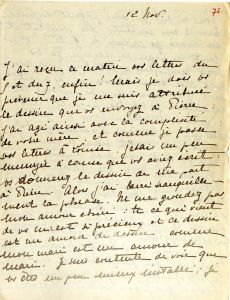 12 Nov.
71
J'ai reçu ce matin vos lettres du
5 et du 7, enfin! Mais je dois vs
prévenir que je me suis attribué
le dessin que vs envoyez à Pierre.
J'ai agi ainsi avec la complicité
de votre mère, et comme je passe
vos lettres à tous, j'étais un peu
ennuyée à cause que vs aviez écrit
vs donnerez le dessin de ma part
à Pierre. Alors j'ai
ment la phrase. Ne me grondez pas
mon amour chéri: tt ce qui vient
de vs m'est si précieux, et ce dessin
est un amour de dessin, comme
mon mari est un amour de
mari. Je suis contente de voir que
vs êtes un peu mieux installé; je